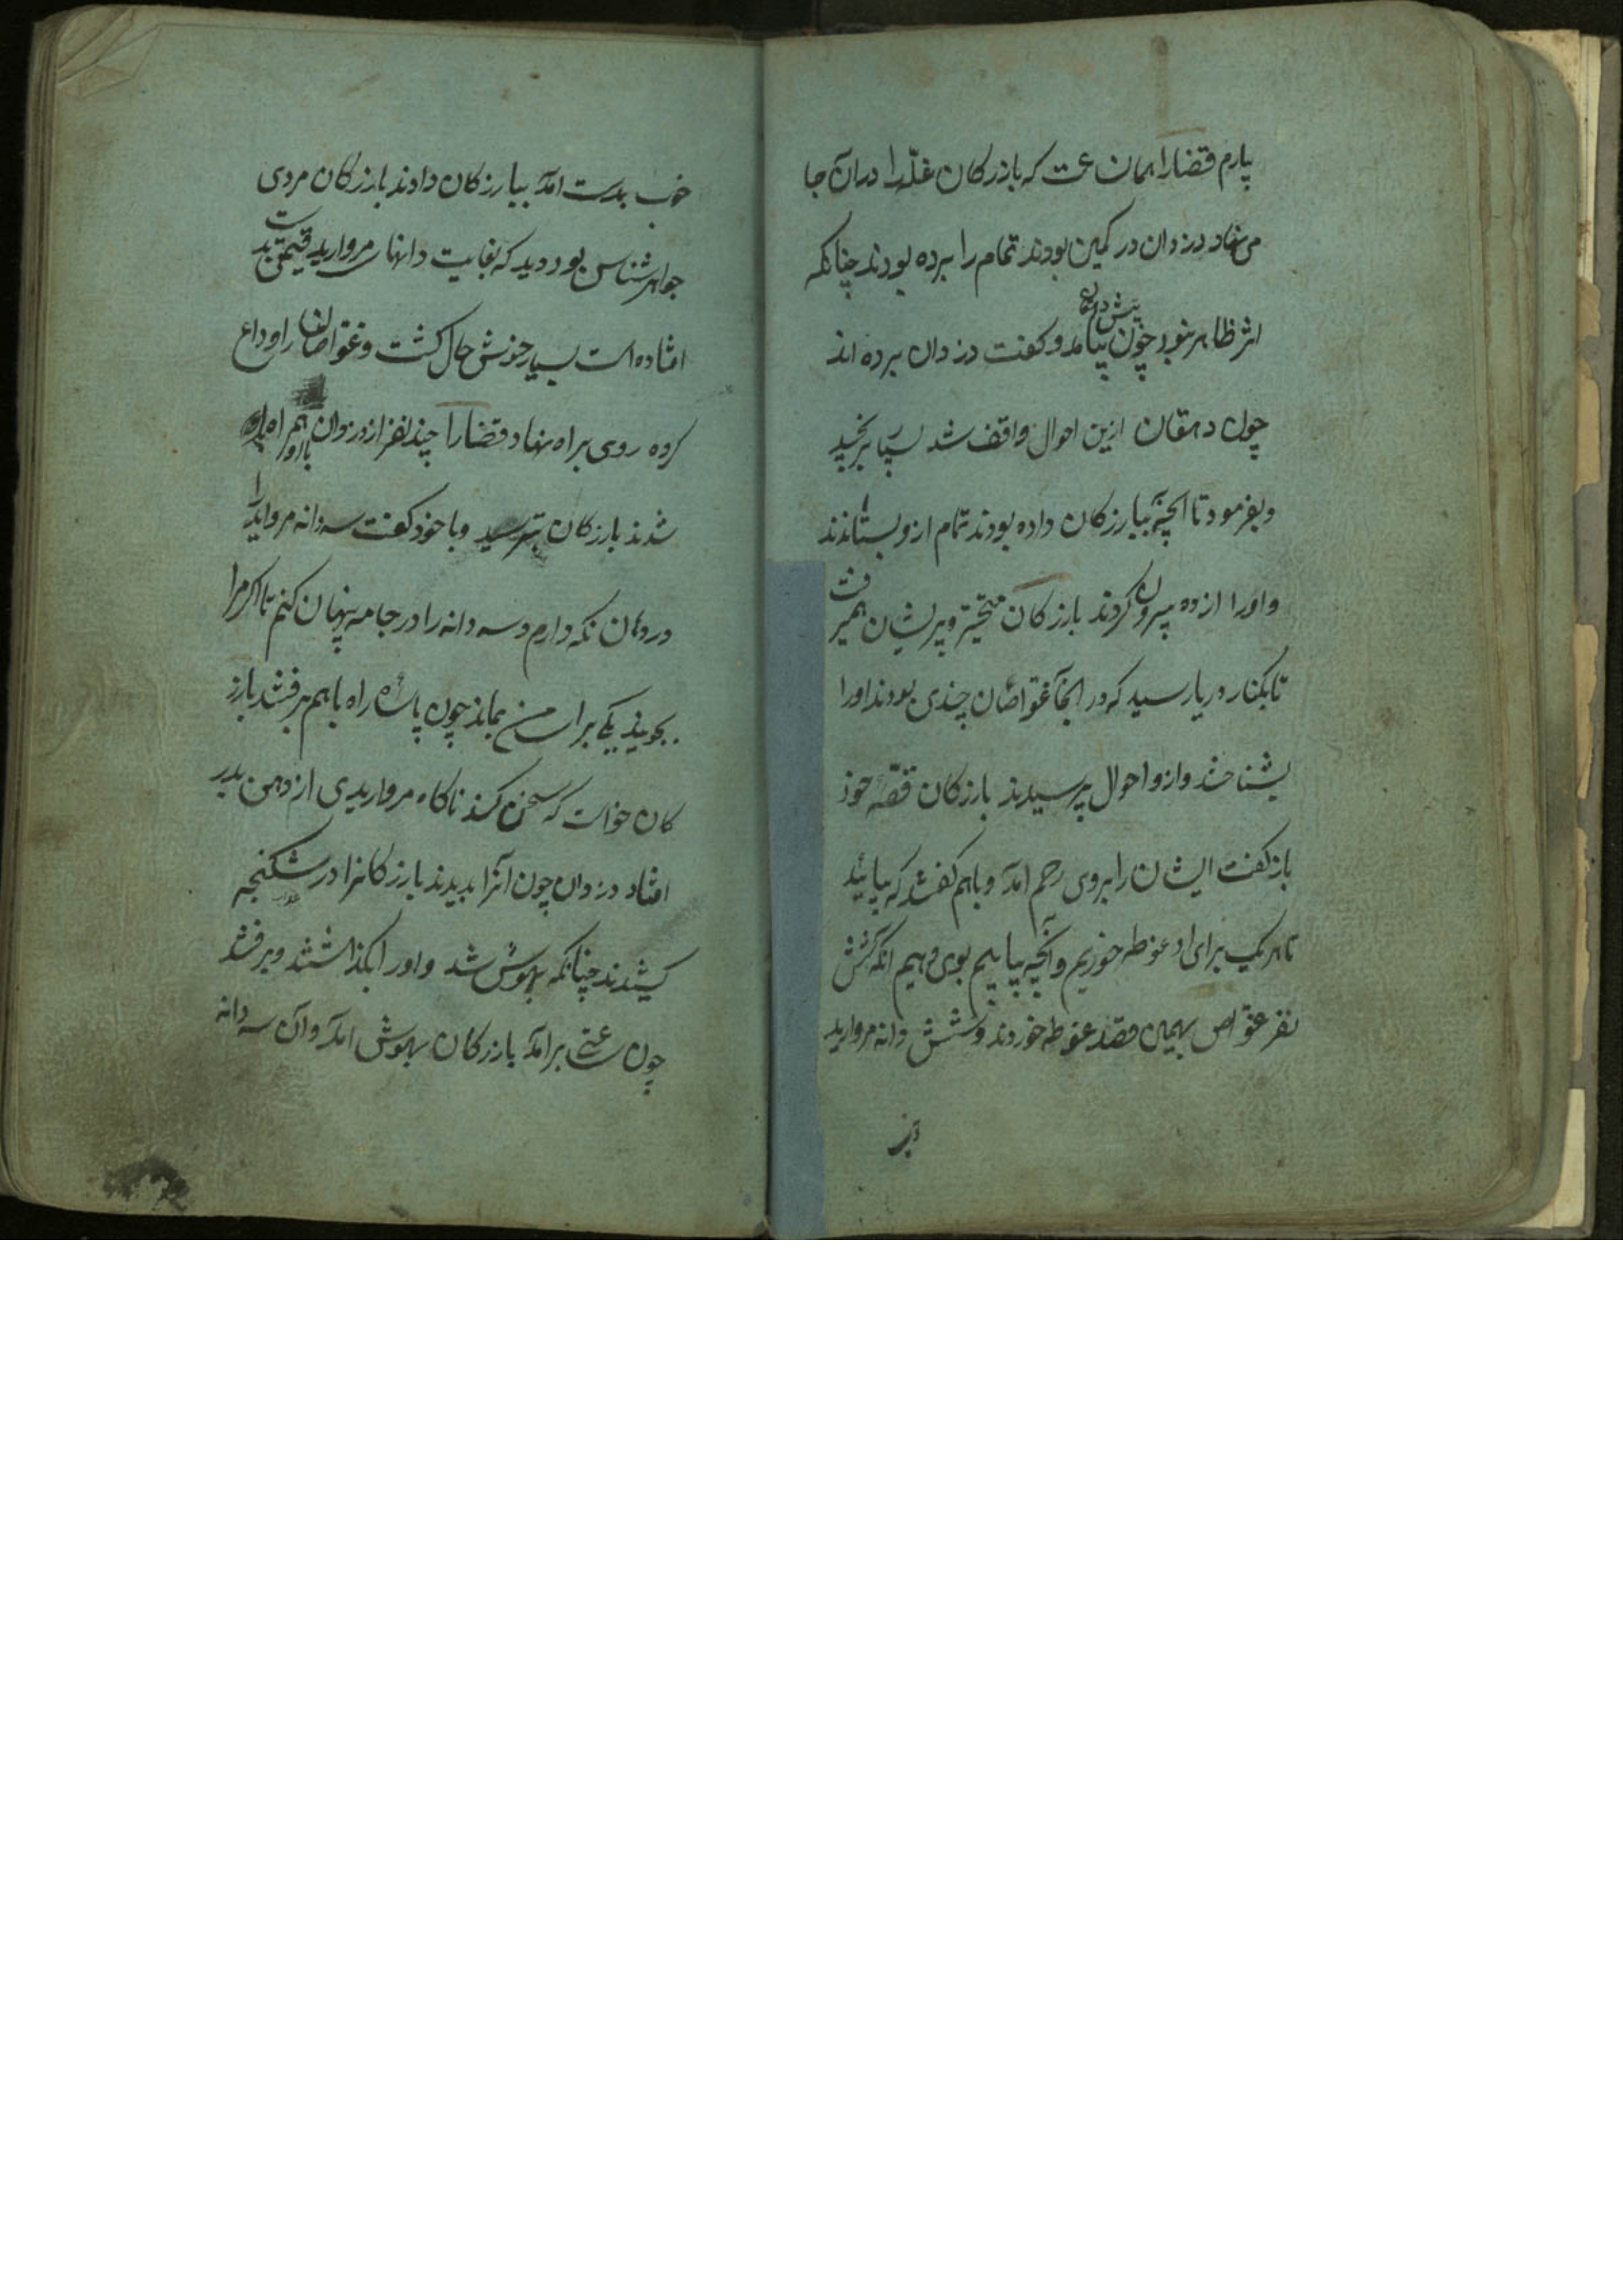 پارم قضارا همان ساعت که بازرکان غلّه را دران جا
می نهاد دزدان در کمین بودند تمام را برده بودند چنانکه
اثر ظاهر نبود چون پیش دهقان بیامد و کفت دزدان برده اند
چون دهقان ازین احوال واقف شد بسیار برنجید
و بفرمود تا انچه ببازرکان داده بودند تمام ازو بستاندند
و اورا از ده بیرون کردند بازرکان متحیّر و پریشان همیرفت
تا بکنار دریا رسید که در انجا غوّاصان چندی بودند اورا
بشناختند و ازو احوال پرسیدند بازرکان قصّه خود
باز کفت ایشان را بروی رحم امد و باهم کفتند که بیائید
تا هر یک برای او غوطه خوریم و انچه بیابیم بوی دهیم انکه شش
نفر غوّاص بهمین قصد غوطه خوردند و شش دانه مروارید
خوب بدست امد ببازرکان دادند بازرکان مردی
جواهر شناس بود دید که بغایت دانهای مروارید قیمتی بدست
افتاده است بسیار خوش حال کشت و غوّاصان را وداع
کرده روی براه نهاد قضارا چند نفر از دزدان با او همراه
شدند بازرکان بترسید و با خود کفت سه دانه مروارید را
در دهان نکه دارم و سه دانه را در جامه پنهان کنم تا اکر مرا
بجویند یکی برای من بماند چون پاره راه باهم برفتند بازر
کان خواست که سخن کند ناکاه مرواریدی از دهن بدر
افتاد دزدان چون انرا بدیدند بازرکانرا در شکنجه
کشیدند چنانکه بیهوش شد و اورا بکذاشتند و برفتند
چون ساعتی برامد بازرکان بهوش امد و آن سه دانه